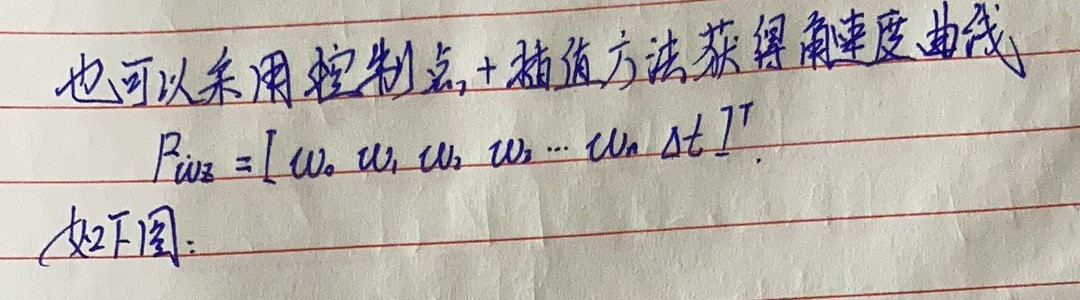 也可以采用控制点,+插值方法获得角速度曲线
P_{wz} = [ w₀ w₁ w₂ w₃ ... wₙ Δt ]ᵀ.
如下图: